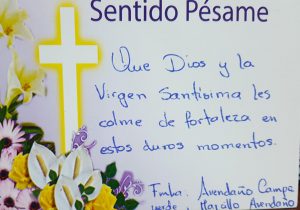 Sentido Pésame
Que Dios y la
Virgen Santísima les
colme de fortaleza en
estos duros momentos.
Fmha: Avendaño Campo
Avendaño